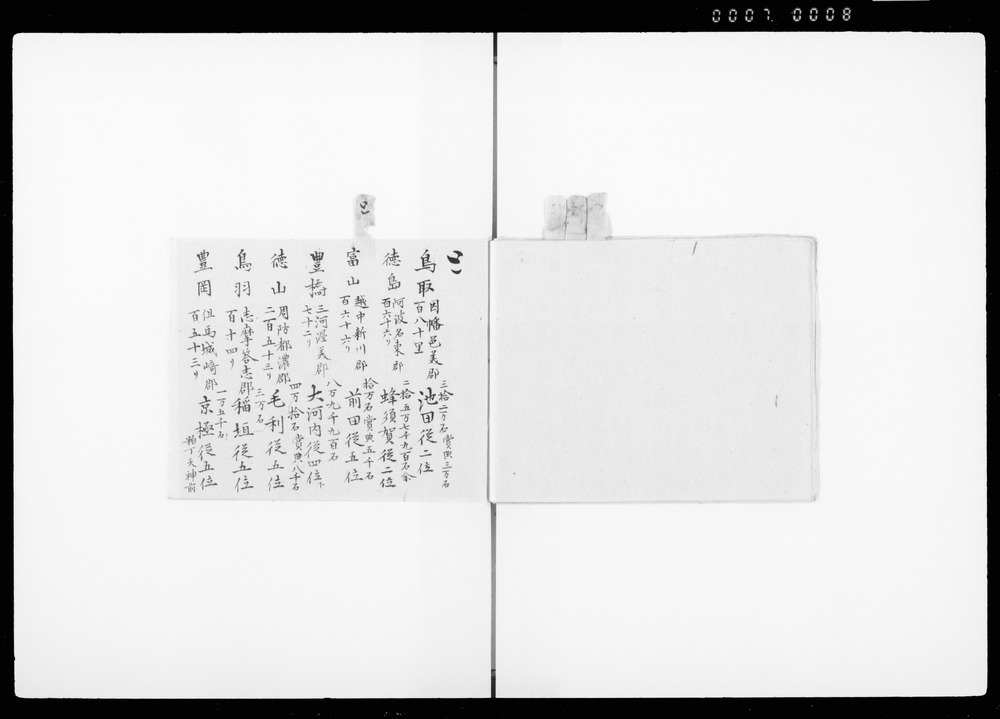 0007 0008
と
と
鳥取 因幡邑美郡 百八十里 三拾二万石 賞典三万石 池田従二位
徳島 阿波名東郡 百六十六リ 二拾五万七千九百石余 蜂須賀従二位
富山 越中新川郡 百六十六リ 拾万石 賞典五千石 前田従五位
豊橋 三河渥美郡 七十二リ 八万九千九百石 大河内従四位下
徳山 周防都濃郡 二百五十三リ 四万拾石 賞典八千石 毛利従五位
鳥羽 志摩答志郡 百十四リ 三万石 稲垣従五位
豊岡 但馬城崎郡 百五十三リ 一万五千石 京極従五位 天神前